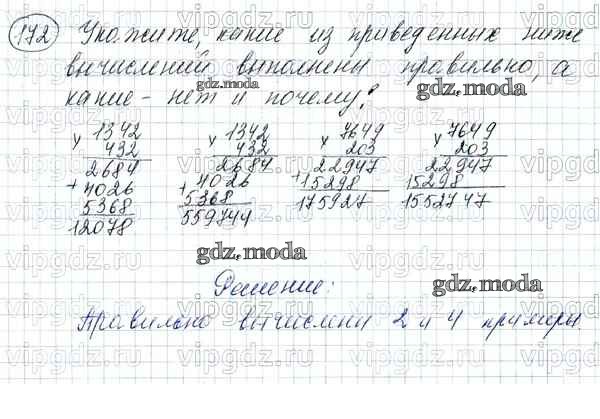 172 Укажите, какие из приведенных ниже
вычислений выполнены правильно, а
какие - нет и почему?
x 1342 x 1342 x 7649 x 7649
432 432 203 203
2684 2684 22947 22947
+ 4026 + 4026 + 15298 15298
5368 5368 175927 1552747
12078 559744
Решение:
Правильно вычислены 2 и 4 примеры.
gdz.moda
gdz.moda
gdz.moda
gdz.moda
gdz.moda
vipgdz.ru